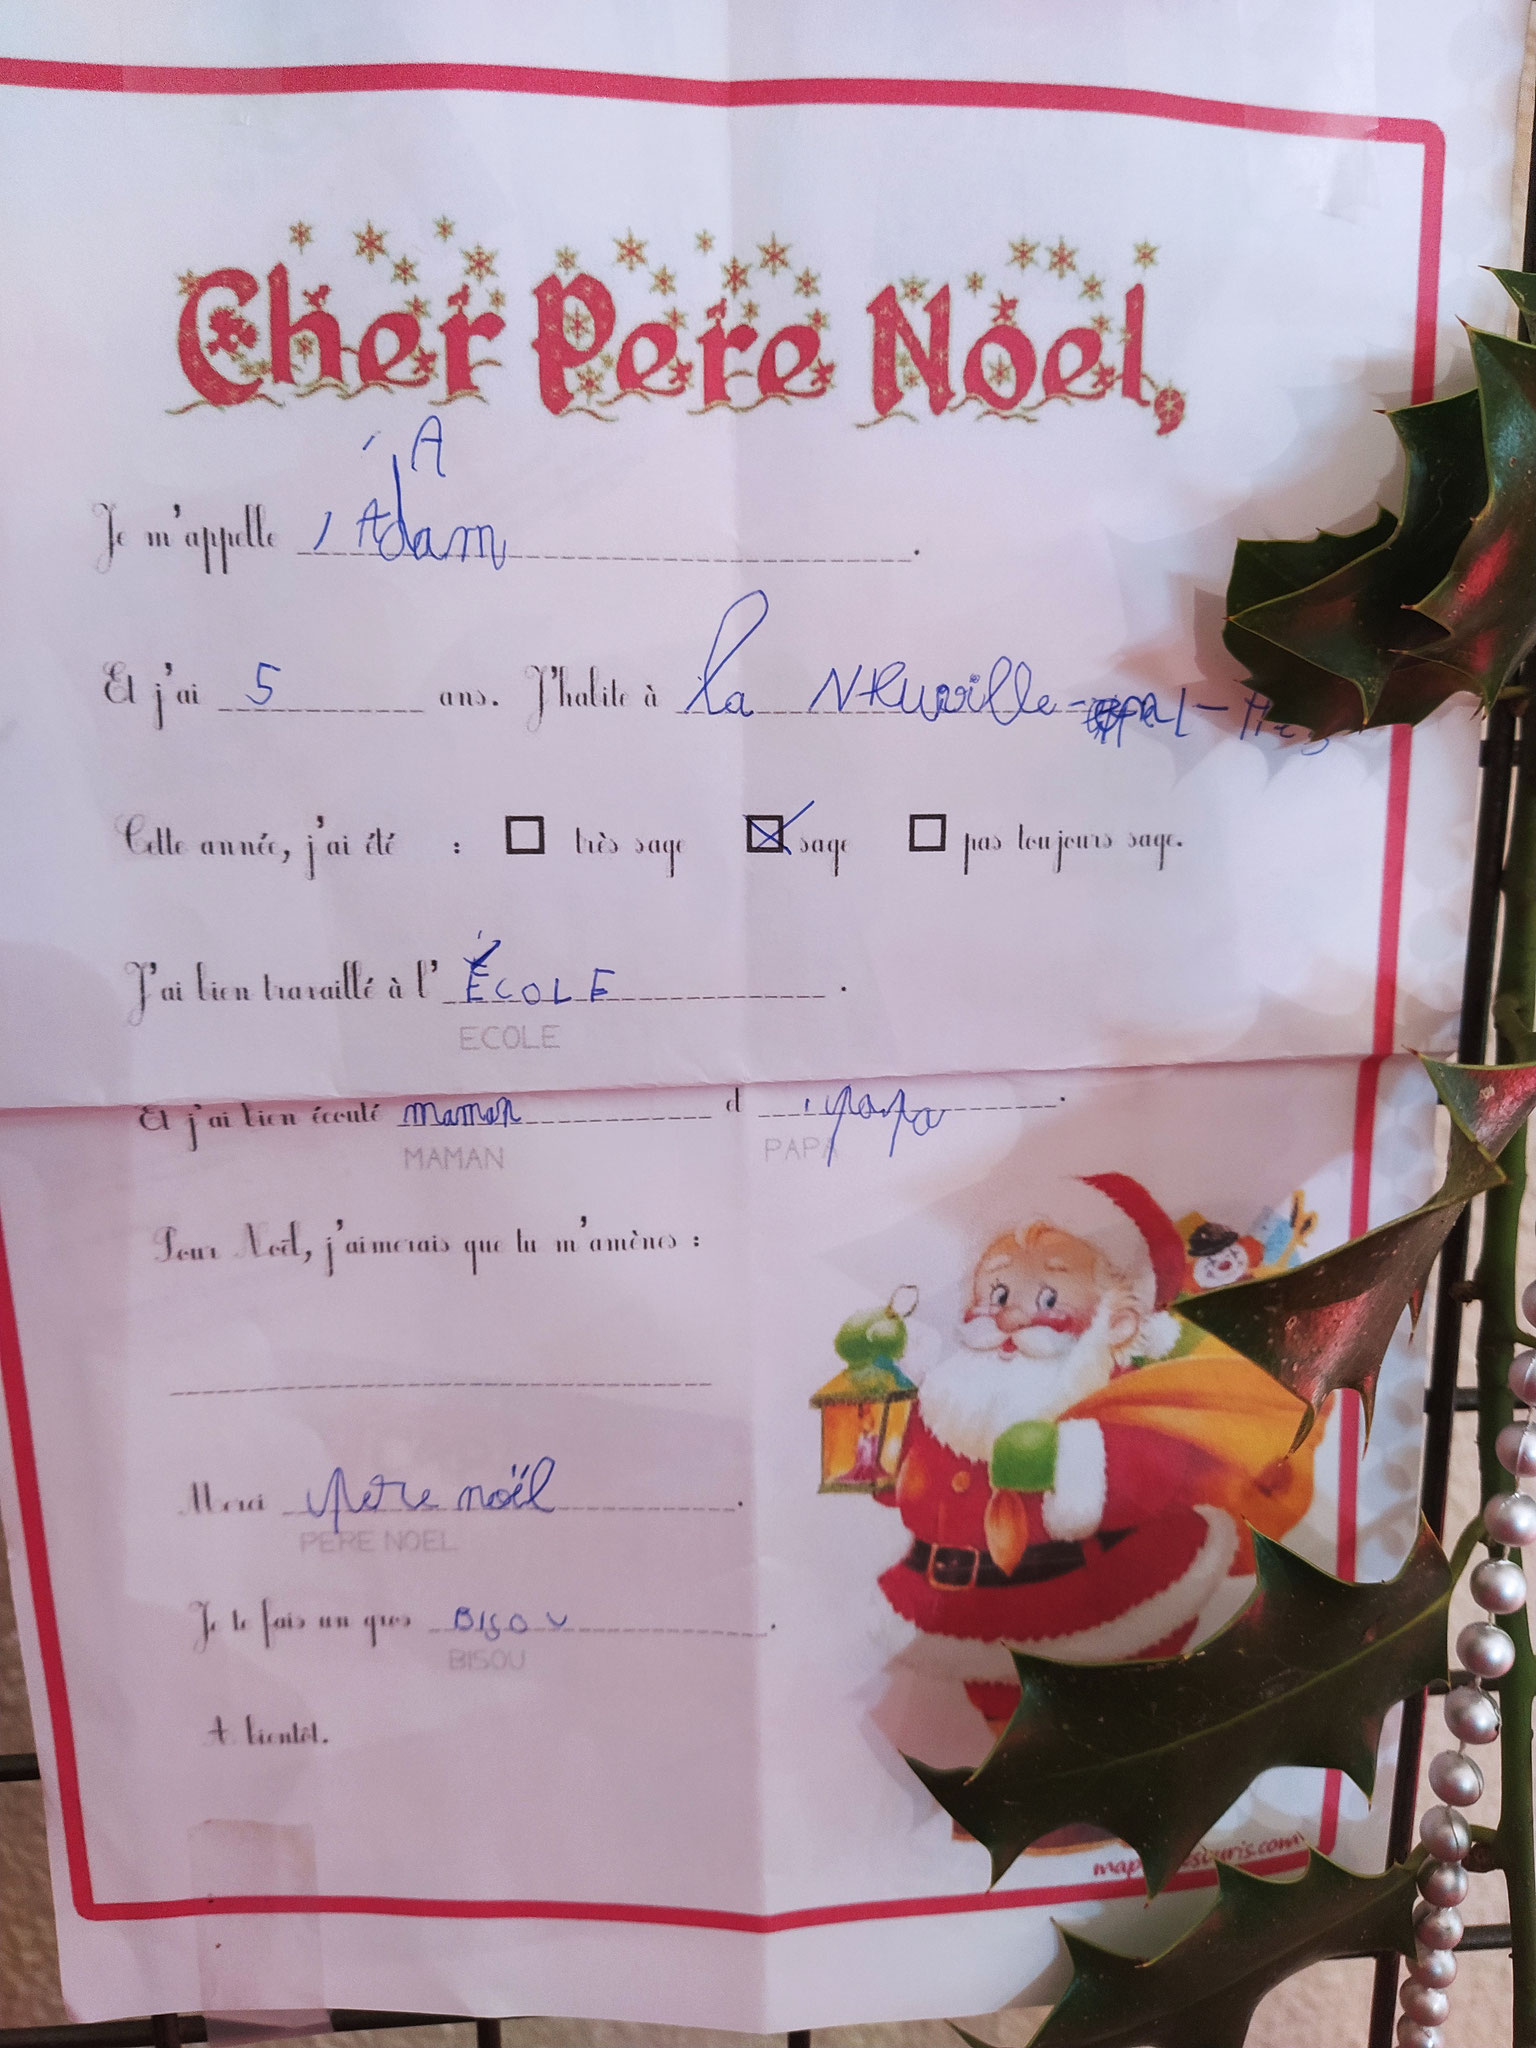 Cher Pere Noel,
A
Je m'appelle Adam.
Et j'ai 5 ans. J'habite à la
Cette année, j'ai été : très sage sage pas toujours sage.
J'ai bien travaillé à l' ÉCOLE.
ECOLE
Et j'ai bien écouté maman et papa.
MAMAN PAPA
Pour Noël, j'aimerais que tu m'amènes :
Merci père noël.
PERE NOEL
Je te fais un gros BISOU.
BISOU
A bientôt.